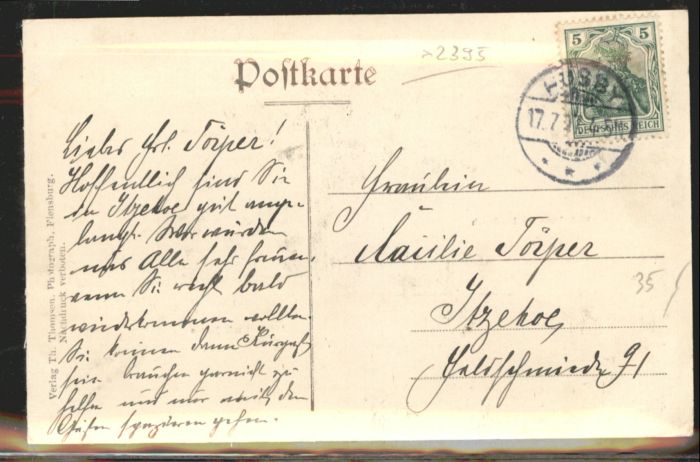 x2395
Postkarte
5 5
DEUTSCHES REICH
HUSBY
17.7.
Liebes Frl. Törper!
Hoffentlich sind Sie
in Itzehoe gut ange-
langt. Wir würden
uns Alle sehr freuen,
wenn Sie recht bald
wiederkommen wollten.
Sie können dann Kurgast
sein brauchen garnicht zu
helfen und nur mit den
Gästen spazieren gehen.
Fräulein
Cäcilie Törper
Itzehoe,
Feldschmiede 91
35
Verlag Th. Thomsen, Photograph, Flensburg.
Nachdruck verboten.